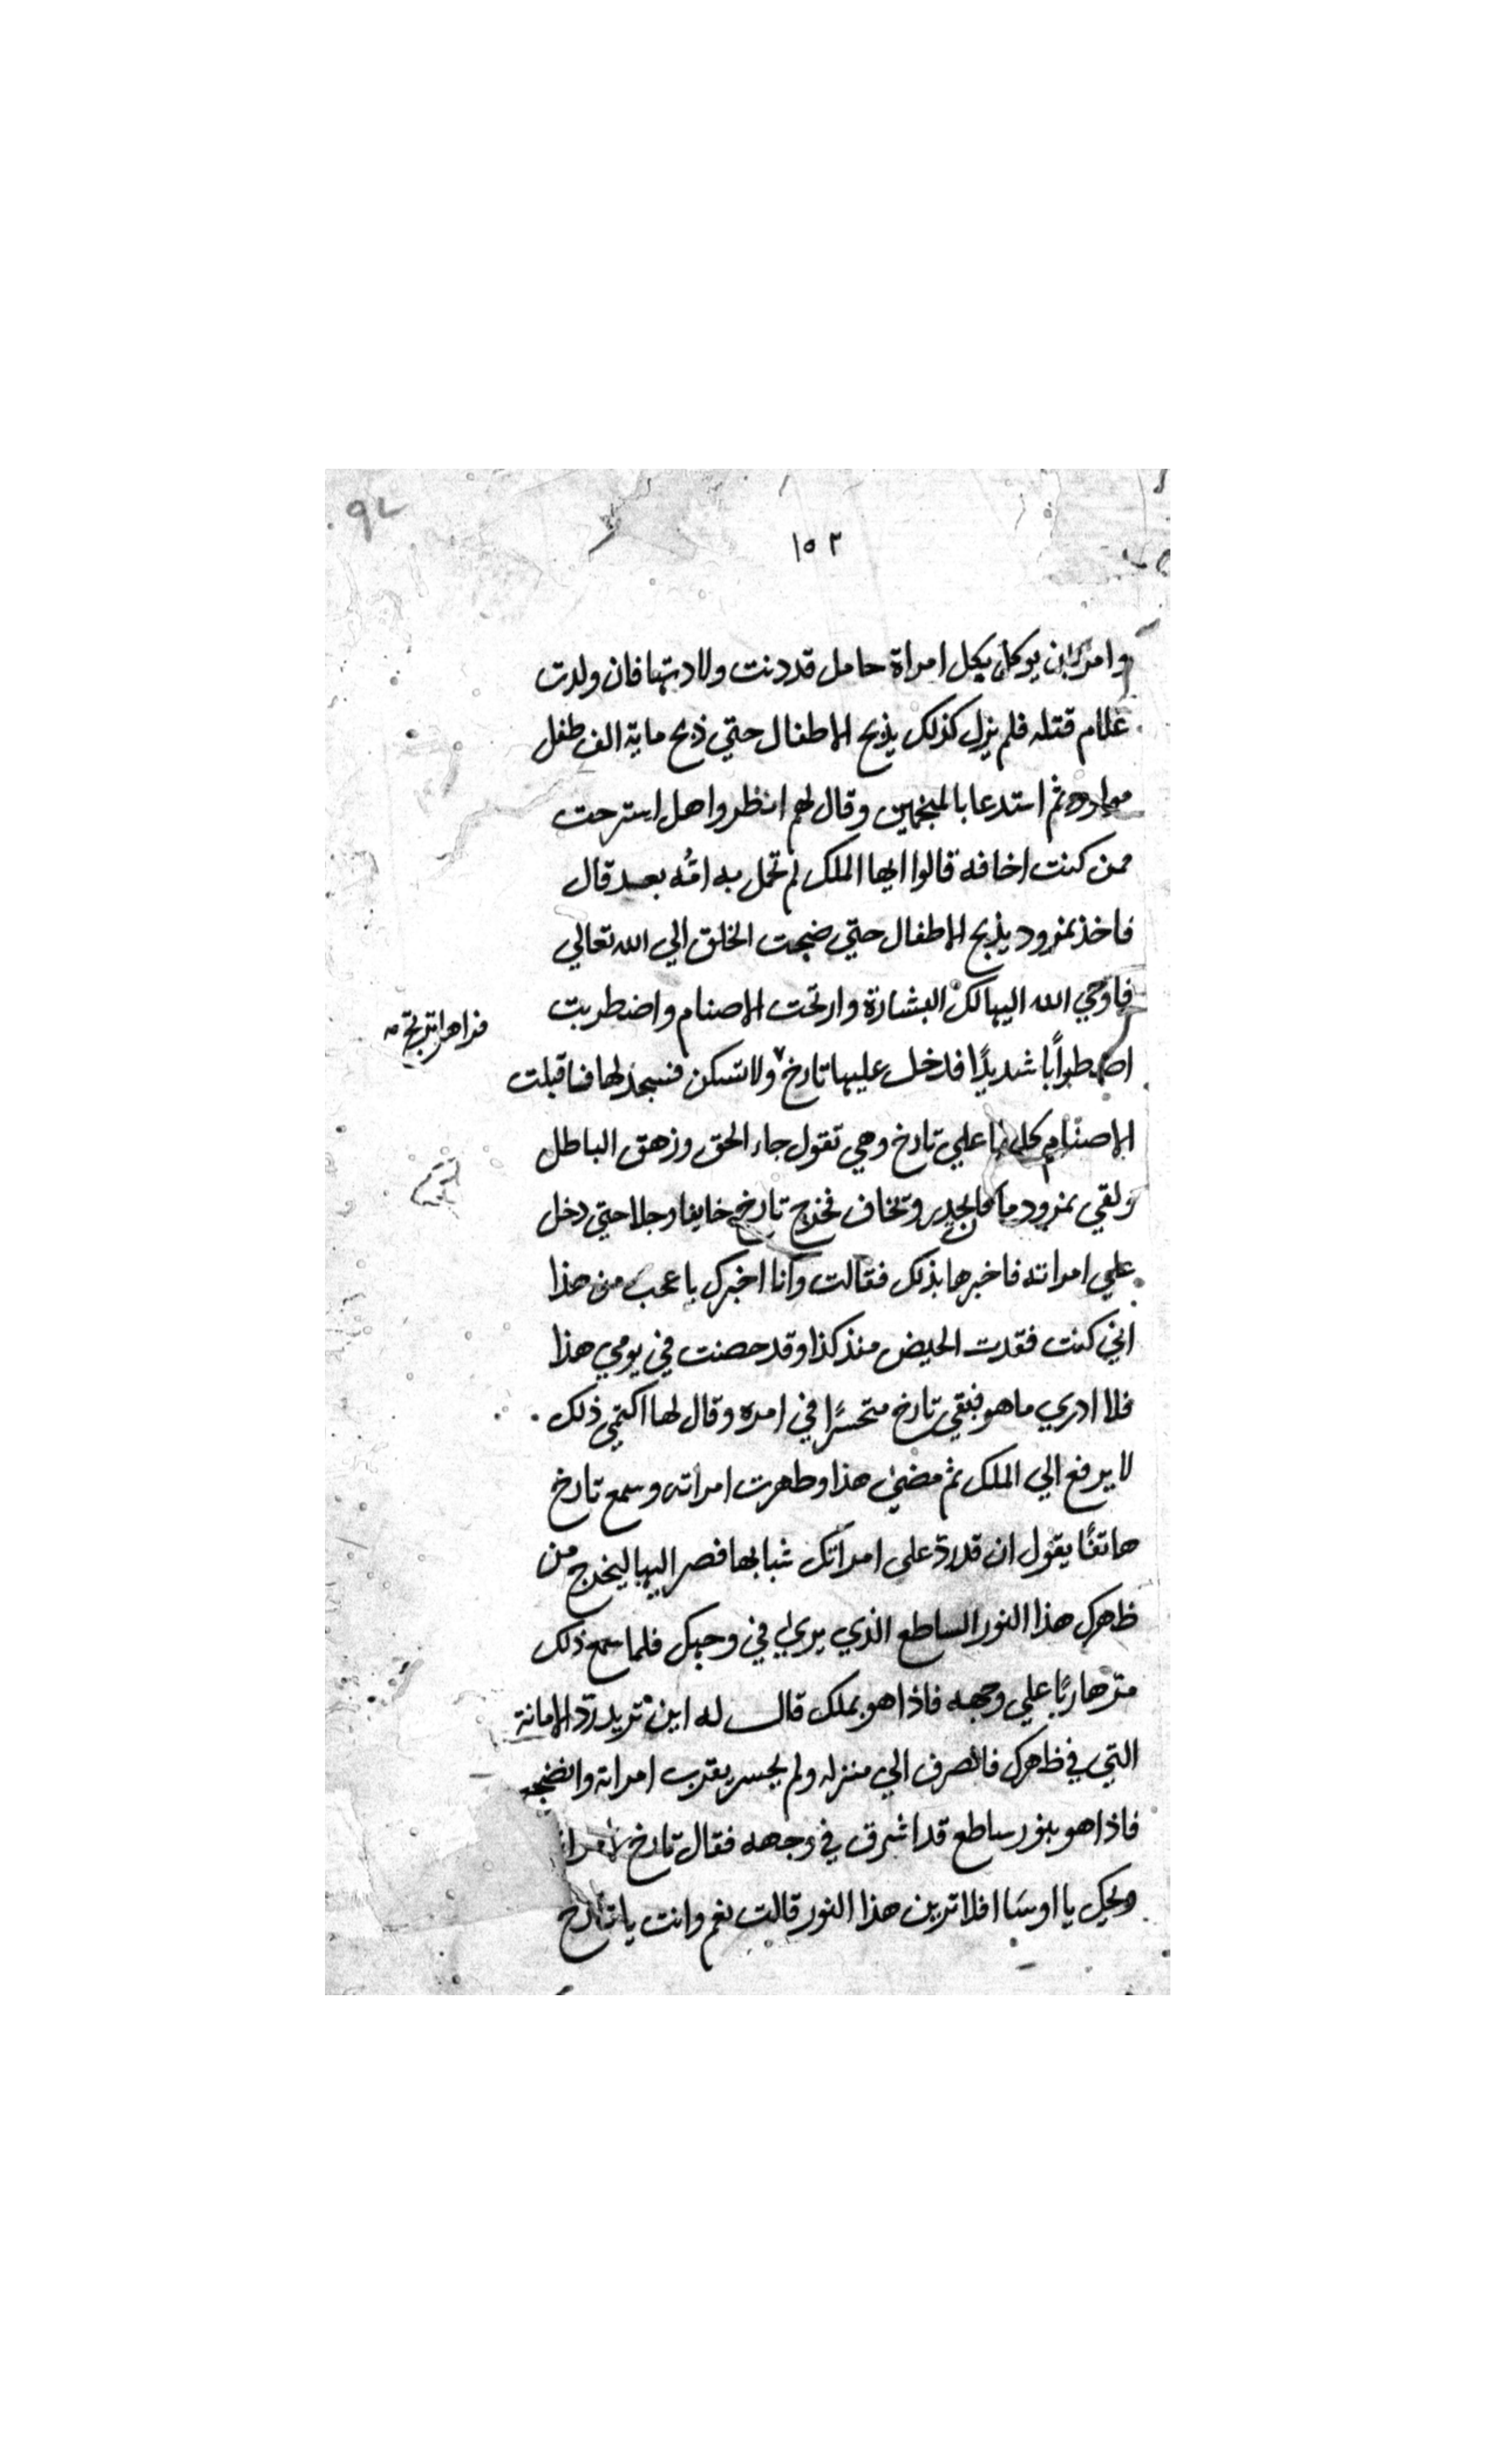 ٩٢
١٥٢
وامر بان يوكل بكل امراة حامل قد دنت ولادتها فان ولدت
غلام قتله فلم يزل كذلك يذبح الاطفال حتي ذبح ماية الف طفل
ثم استدعا بالمنجمين وقال لهم انظروا هل استرحت
ممن كنت اخافه قالوا ايها الملك لم تحمل به امُه بعد قال
فاخذ نمرود يذبح الاطفال حتي ضجت الخلق الي الله تعالي
فاوحي الله اليها لك البشارة وارتجت الاصنام واضطربت
فراها ترتج
اضطرابًا شديدًا فدخل عليها تارخ ولا تسكن فسجد لها فاقبلت
الاصنام كلها علي تارخ وهي تقول جاء الحق وزهق الباطل
ولقي نمرود ما كان يحدر وتخاف فخرج تارخ خايفا وجلا حتي دخل
علي امراته فاخبرها بذلك فقالت وانا اخبرك باعجب من هذا
اني كنت فقدت الحيض منذ كذا وقد حصنت في يومي هذا
فلا ادري ما هو فبقي تارخ متحسرًا في امره وقال لها اكتمي ذلك
لا يرفع الي الملك ثم مضي هذا وطهرت امراته وسمع تارخ
هاتفًا يقول ان قد ردّ علي امراتك شبابها فصر اليها ليخرج من
ظهرك هذا النور الساطع الذي يري في وجهك فلما سمع ذلك
مرّ هاربًا علي وجهه فاذا هو بملك قال له اين تريد ردّ الامانة
التي في ظهرك فانصرف الي منزله ولم يجسر يقرب امراته
فاذا هو بنور ساطع قد اشرق في وجهه فقال تارخ
ويحك يا اوسَا افلا ترين هذا النور قالت نعم وانت يا تارخ